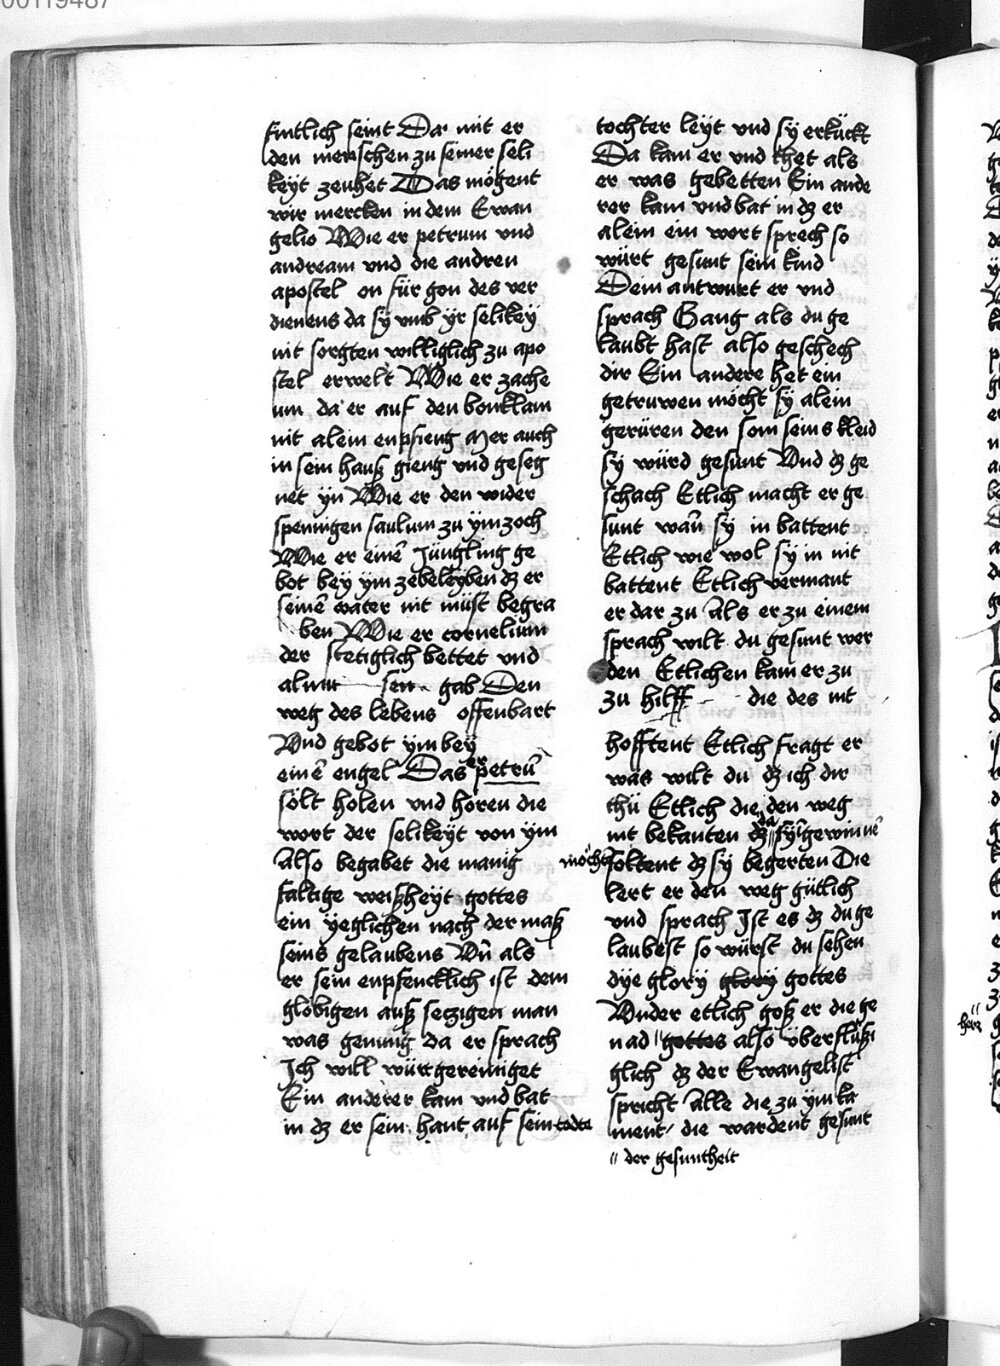 00119487
sintlich seint Dar mit er
den menschen zu seiner seli
keÿt zeuhet Was mögent
wir mercken in dem Ewan
gelio Wie er petrum vnd
andream vnd die andren
apostel on für gon des ver
dienens da sÿ vmb ÿr selikeÿ
nit sorgten williglich zu apo
stel erwelt Wie er zache
um da er auf den bom klam
nit alein enpfieng Mer auch
in sein hauß gieng vnd geseg
net ÿn Wie er den wider
spenigen saulum zu ÿm zoch
Wie er einē Jüngling ge
bot beÿ ÿm ze beleÿben dz er
seinē vater nit müst begra
ben Wie er cornelium
der stetiglich bettet vnd
almu sen gab Den
weg des lebens offenbart
Vnd gebot ÿm beÿ
einē engel Das er petrū
sölt holen vnd hören die
wort der selikeÿt von ÿm
also begabet die manig
faltige weißheÿt gottes
ein ÿeglichen nach der maß
seins gelaubens Vn̄ als
er sein enpfencklich ist dem
globigen auß setzigen man
was genung da er sprach
Ich will würt gereiniget
Ein anderer kam vnd bat
in dz er sein hant auf sein todte
tochter leÿt vnd sÿ erkückt
Da kam er vnd thet als
er was gebetten Ein ande
rer kam vnd bat in dz er
alein ein wort sprech so
würt gesunt sein kind
Dem antwurt er vnd
sprach Gang als du ge
laubt hast also geschech
dir Ein andere het ein
getruwen möcht sÿ alein
gerüren den som seins kleid
sÿ würd gesunt Vnd dz ge
schach Etlich macht er ge
sunt wan̄ sÿ in battent
Etlich wie wol sÿ in nit
battent Etlich vermant
er dar zu Als er zu einem
sprach wilt du gesunt wer
den Etlichen kam er zu
zu hilff die des nit
hofftent Etlich fragt er
was wilt du dz ich dir
thü Etlich die den weg
nit bekanten da dz sÿ gewinnē
möcht soltent dz sÿ begerten Die
lert er den weg gütlich
vnd sprach Ist es dz du ge
laubest so würst du sehen
dÿe glorÿ glorÿ gottes
Vnder etlich goß er die ge
nad " gottes also überflüßi
glich dz der Ewangelist
spricht Alle die zu ÿm ka
ment die wardent gesunt
" der gesuntheit